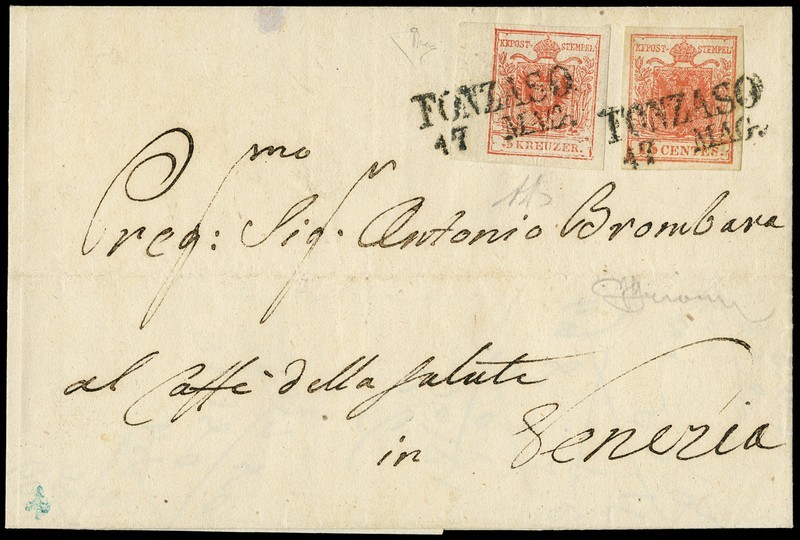 KKPOST-STEMPEL
KKPOST-STEMPEL
FONZASO
17 MAG.
FONZASO
17 MAG.
3 KREUZER.
CENTES.
Preg:mo Sigr. Antonio Brombara
al Caffè della Salute
in Venezia